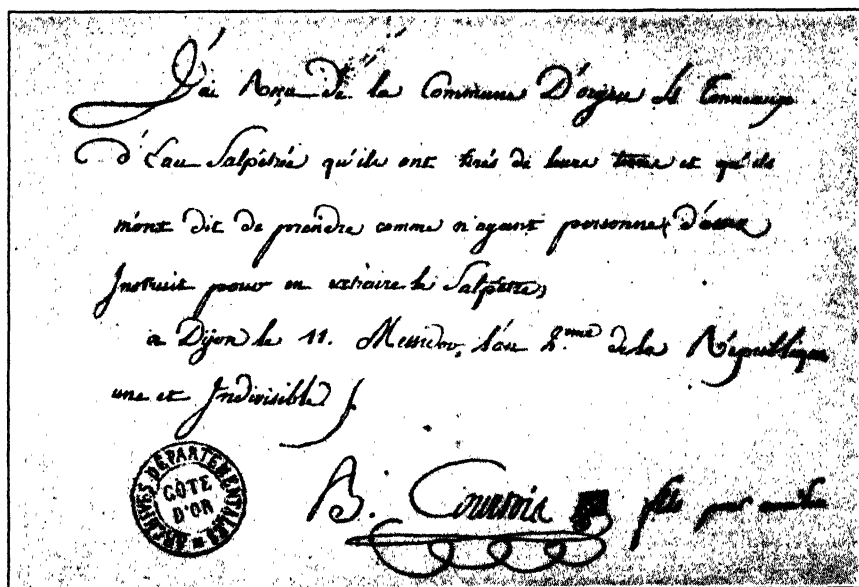 J'ai Reçu de la Commune D'orgeu le
d'Eau Salpêtrée qu'ils ont tirés de leurs terres et qu'ils
m'ont dit de prendre comme n'ayant personne d'assez
Instruit pour en extraire le Salpêtre,
a Dijon le 11. Messidor, l'an 2.me de la République
une et Indivisible
B. Courtois fils pour
ARCHIVES DÉPARTEMENTALES
CÔTE
D'OR